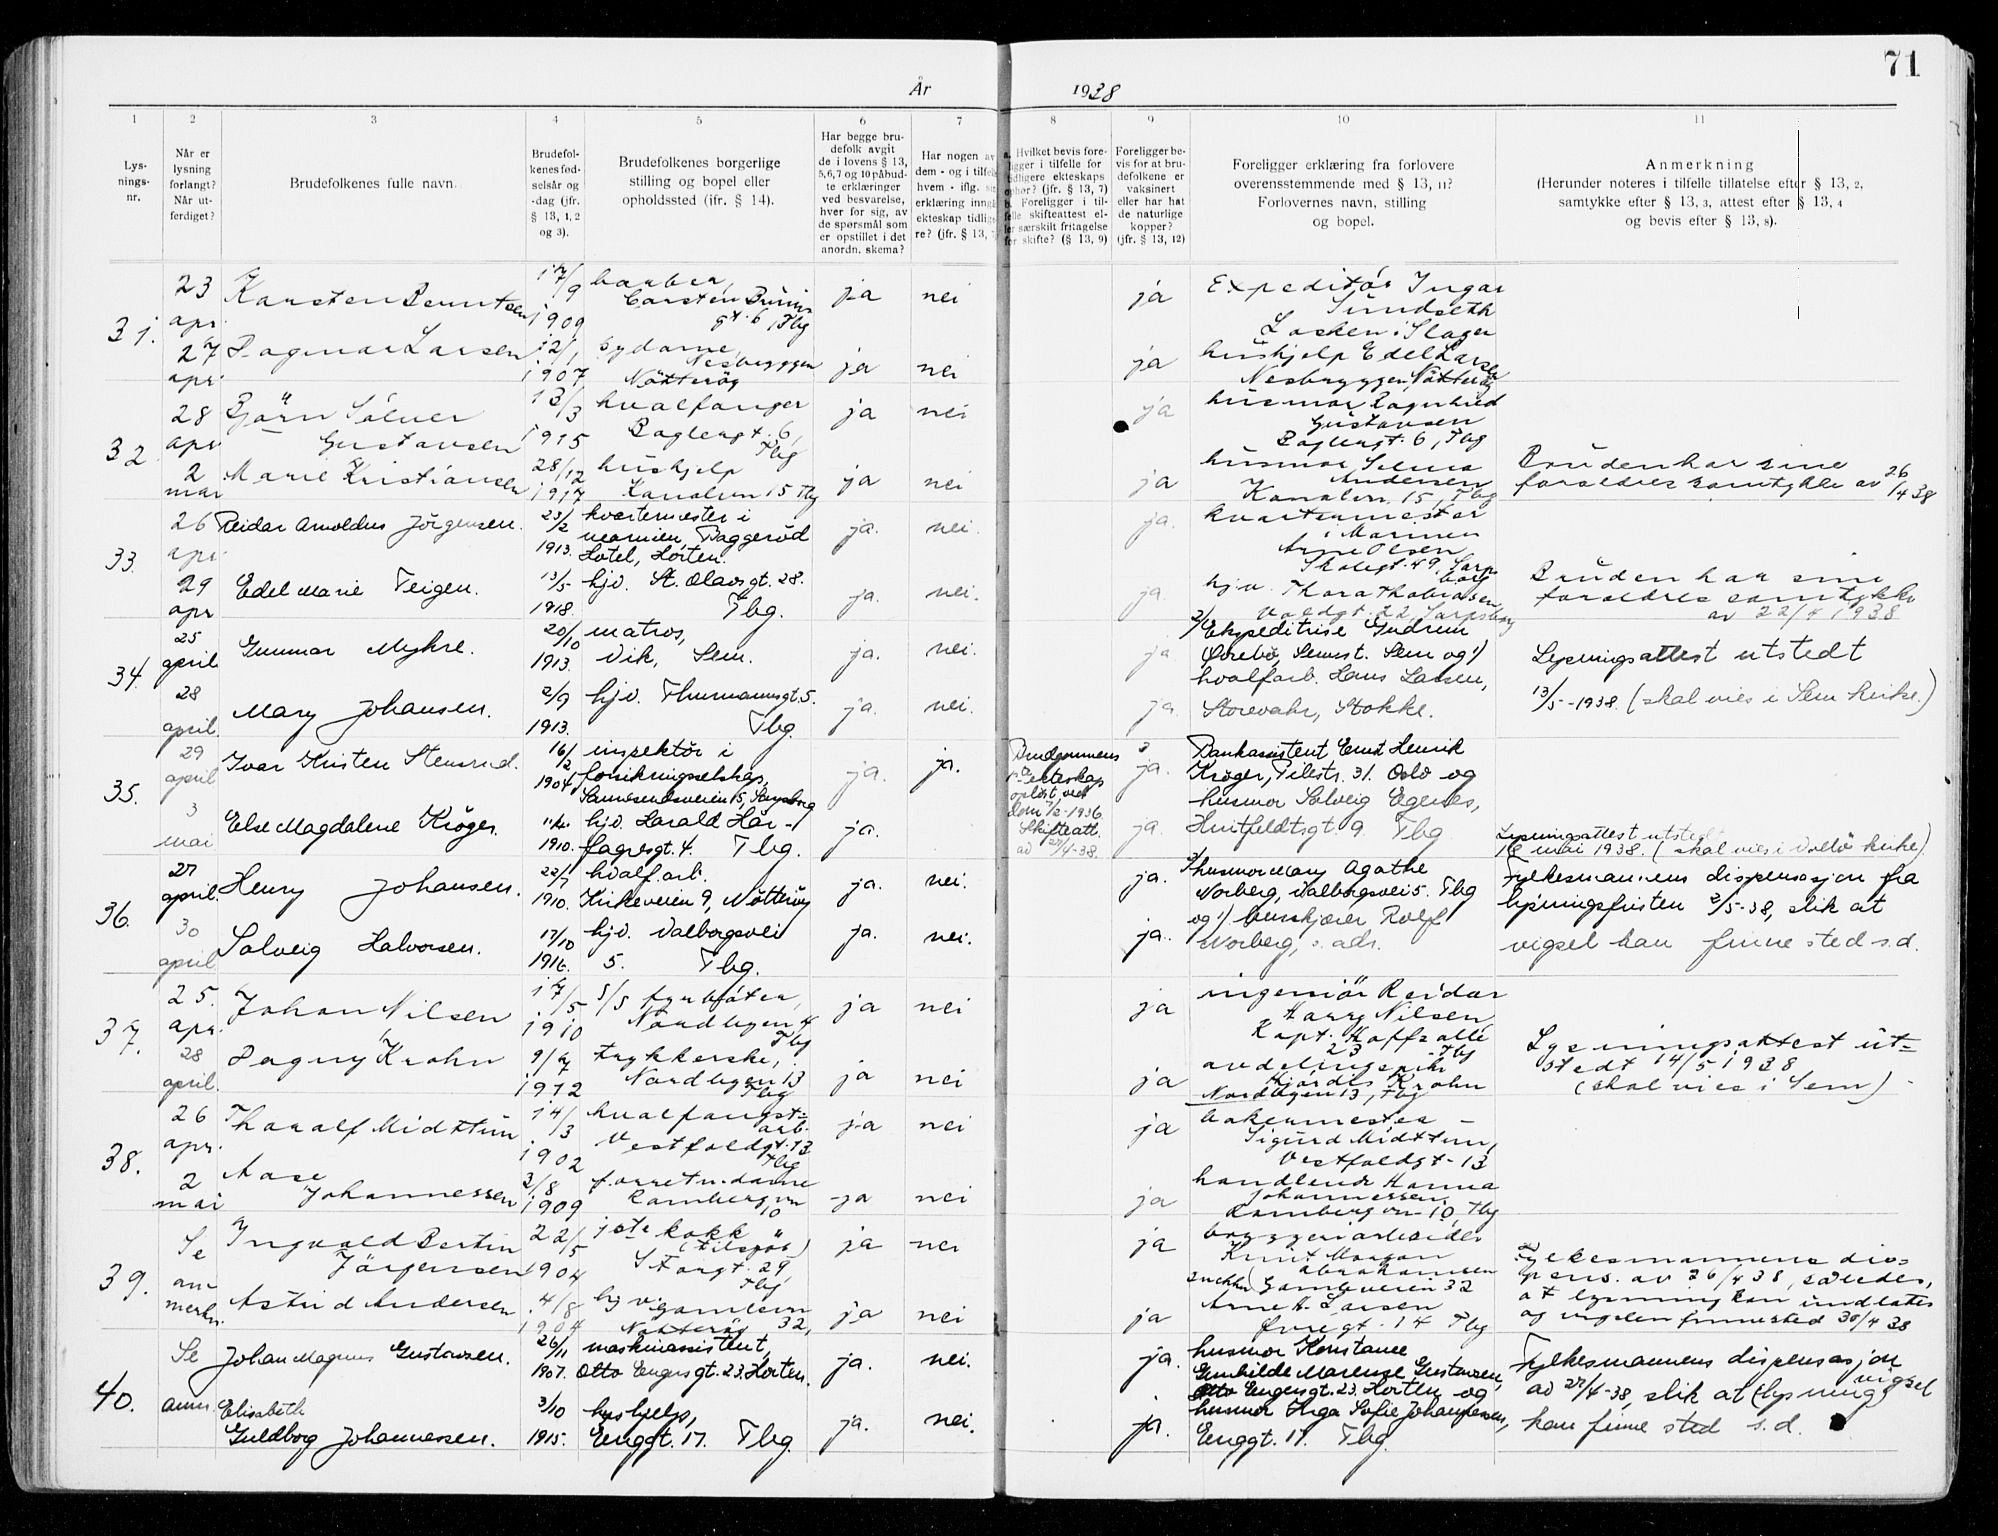 71
År 1938
1 2 3 4 5 6 7 8 9 10 11
Lys-
nings-
nr.
Når er
lysning
forlangt?
Når ut-
ferdiget?
Brudefolkenes fulle navn.
Brudefol-
kenes fød-
selsår og
-dag (jfr.
§ 13, 1, 2
og 3).
Brudefolkenes borgerlige
stilling og bopel eller
opholdssted (ifr. § 14).
Har begge bru-
defolk avgit
de i lovens § 13,
5,6,7 og 10 påbud-
te erklæringer
ved besvarelse,
hver for sig, av
de spørsmål som
er opstillet i det
anordn. skema?
Har nogen av
dem - og i tilfelle
hvem - iflg.
erklæring inngå
ekteskap tidlige-
re? (jfr. § 13,
a. Hvilket bevis fore-
ligger i tilfelle for
tidligere ekteskaps
ophør? (jfr. § 13, 7)
b. Foreligger i til-
felle skifteattest el-
ler særskilt fritagelse
for skifte? (§ 13, 9)
Foreligger be-
vis for at bru-
defolkene er
vaksinert
eller har hat
de naturlige
kopper?
(jfr. § 13, 12)
Foreligger erklæring fra forlovere
overensstemmende med § 13, 11?
Forlovernes navn, stilling
og bopel.
Anmerkning
(Herunder noteres i tilfelle tillatelse efter § 13, 2,
samtykke efter § 13, 3, attest efter § 13, 4
og bevis efter § 13, 8).
31.
23
apr.
Karsten Berntsen
17/9
1909
barber,
Carsten Bruuns
gt. 6, Tbg
ja nei ja
Expeditør Ingar
Sundseth
Løsken i Slagen
27
apr
Dagmar Larsen
12/1
1907
sydame,
Nesbryggen
Nøtterøy
ja nei ja
hushjelp Edel Larsen
Nesbryggen, Nøtterøy
32
28
apr
Bjørn Sølver
Gustavsen
13/3
1915
hvalfanger
Baglergt. 6,
Tbg
ja nei ja
husmor Ragnhild
Gustavsen
Baglergt. 6, Tbg
2
mai
Marie Kristiansen
28/12
1917
hushjelp
Kanalvn 15 Tbg
ja nei ja
husmor Selma
Andersen
Kanalvn. 15, Tbg
Bruden har sine
foreldres samtykke av 26/4 38
33.
26
apr.
Reidar Arnoldus Jörgensen.
23/2
1913.
kvartermester i
marinen, Baggerød
Hotel, Horten.
ja. nei. ja.
Kvartermester
i Marinen
Arne Olsen
Skolegt. 49, Sarps-
borg
29
apr
Edel Marie Teigen.
13/5
1918.
hjv. St. Olavsgt. 28.
Tbg.
ja. nei. ja.
hjv. Thora Thobiasen
Voldgt. 22, Sarpsborg
Bruden har sine
foreldres samtykke
av 22/4 1938
34.
25
april
Gunnar Myhre.
20/10
1913.
matros,
Vik, Sem.
ja. nei. ja
2/ Ekspeditrise Gudrun
Ørebø, Semst. Sem og 1)
hvalfarb. Hans Larsen,
Storevahr, Stokke.
Lysningsattest utstedt
13/5-1938. (skal vies i Sem kirke.)
28
april.
Mary Johansen.
2/9
1913.
hjv. Thurmannsgt. 5.
Tbg.
ja. nei. ja.
35.
29
april
Ivar Kristen Stensrud.
16/2
1904
inspektør i
forsikringselskap,
Sannesundsveien 15, Sarpsborg
ja. ja.
Brudgommens
1ste ekteskap
opløst ved
dom 7/2-1936.
Skifteatt.
av 27/4-38.
ja.
Bankassistent Ernst Henrik
Krøger, Pilestr. 31. Oslo og
husmor Solveig Egenes,
Huitfeldtsgt 9. Tbg.
3
mai
Else Magdalene Krøger.
11/4
1910.
hjv. Harald Hår-
fagresgt. 4. Tbg.
ja. ja.
Lysningsattest utstedt
18 mai 1938. (skal vies i Volle kirke)
36.
27
april.
Henry Johansen.
22/7
1910.
hvalf. arb.
Kirkeveien 9, Nøtterøy
ja. nei. ja.
2/ husmor Mary Agathe
Norberg, Valborgsvei 5. Tbg
og 1) Rolf
Norberg, s. ads.
Fylkesmannens dispensasjon fra
lysningsfristen 2/5-38, slik at
vigsel kan finne sted s.d.
30
april
Solveig Halvorsen.
17/10
1916.
hjv. Valborgsvei
5. Tbg.
ja. nei. ja.
37.
25.
apr.
Johan Nilsen
17/5
1910
s/s fyrbøter,
Nordbyen 4
Tbg
ja nei ja
ingeniör Reidar
Harry Nilsen,
Kapt. Hoffs allé
23 Tbg
28
april.
Dagny Krohn
9/7
1912
trykkerske,
Nordbyen 13
Tbg
ja nei ja
Hjördis Krohn
Nordbyen 13, Tbg
Lysningsattest ut=
stedt 14/5 1938
(skal vies i Sem)
38.
26
apr.
Thoralf Midttun
14/3
1902
hvalfangst=
arb.
Vestfoldgt. 13
Tbg
ja nei ja
bakermester
Sigurd Midttun,
Vestfoldgt. 13
2
mai
Aase
Johannessen
3/8
1909
forretn. dame
Rambergvn
10
ja nei ja
handlende Hanna
Johannessen
Rambergvn 10, Tbg
39.
Se
an-
merkn.
Ingvald Bertin
Jörgensen
22/5
1904
kokk
(tilsjøs)
Storgt. 29,
Tbg
ja nei ja
bryggeriarbeider
Knut Morgan
Abrahamsen
Gamleveien 32
Astrid Andersen
4/8
1904
hjv. gamlevn
32,
Nøtterøy
ja nei ja
Arne A. Larsen
Øvregt. 14 Tbg
Fylkesmannens dis=
pens. av 26/4 38, således,
at lysning kan undlates
og vigselen finne sted 30/4 38
40.
Se
anm.
Johan Magnus Gustavsen.
26/11
1907.
maskinassistent,
Otto Engersgt. 23. Horten.
ja. nei. ja.
husmor Konstanse
Gunhilde Marense Gustavsen,
Otto Engersgt. 23. Horten og
husmor Inga Sofie Johannessen,
Enggt. 17. Tbg.
Elisabeth
Guldborg Johannessen.
3/10
1915.
hushjelp,
Enggt. 17. Tbg.
ja. nei. ja.
Fylkesmannens dispensasjon
av 27/4-38, slik at (lysning) vigsel
kan finne sted s.d.